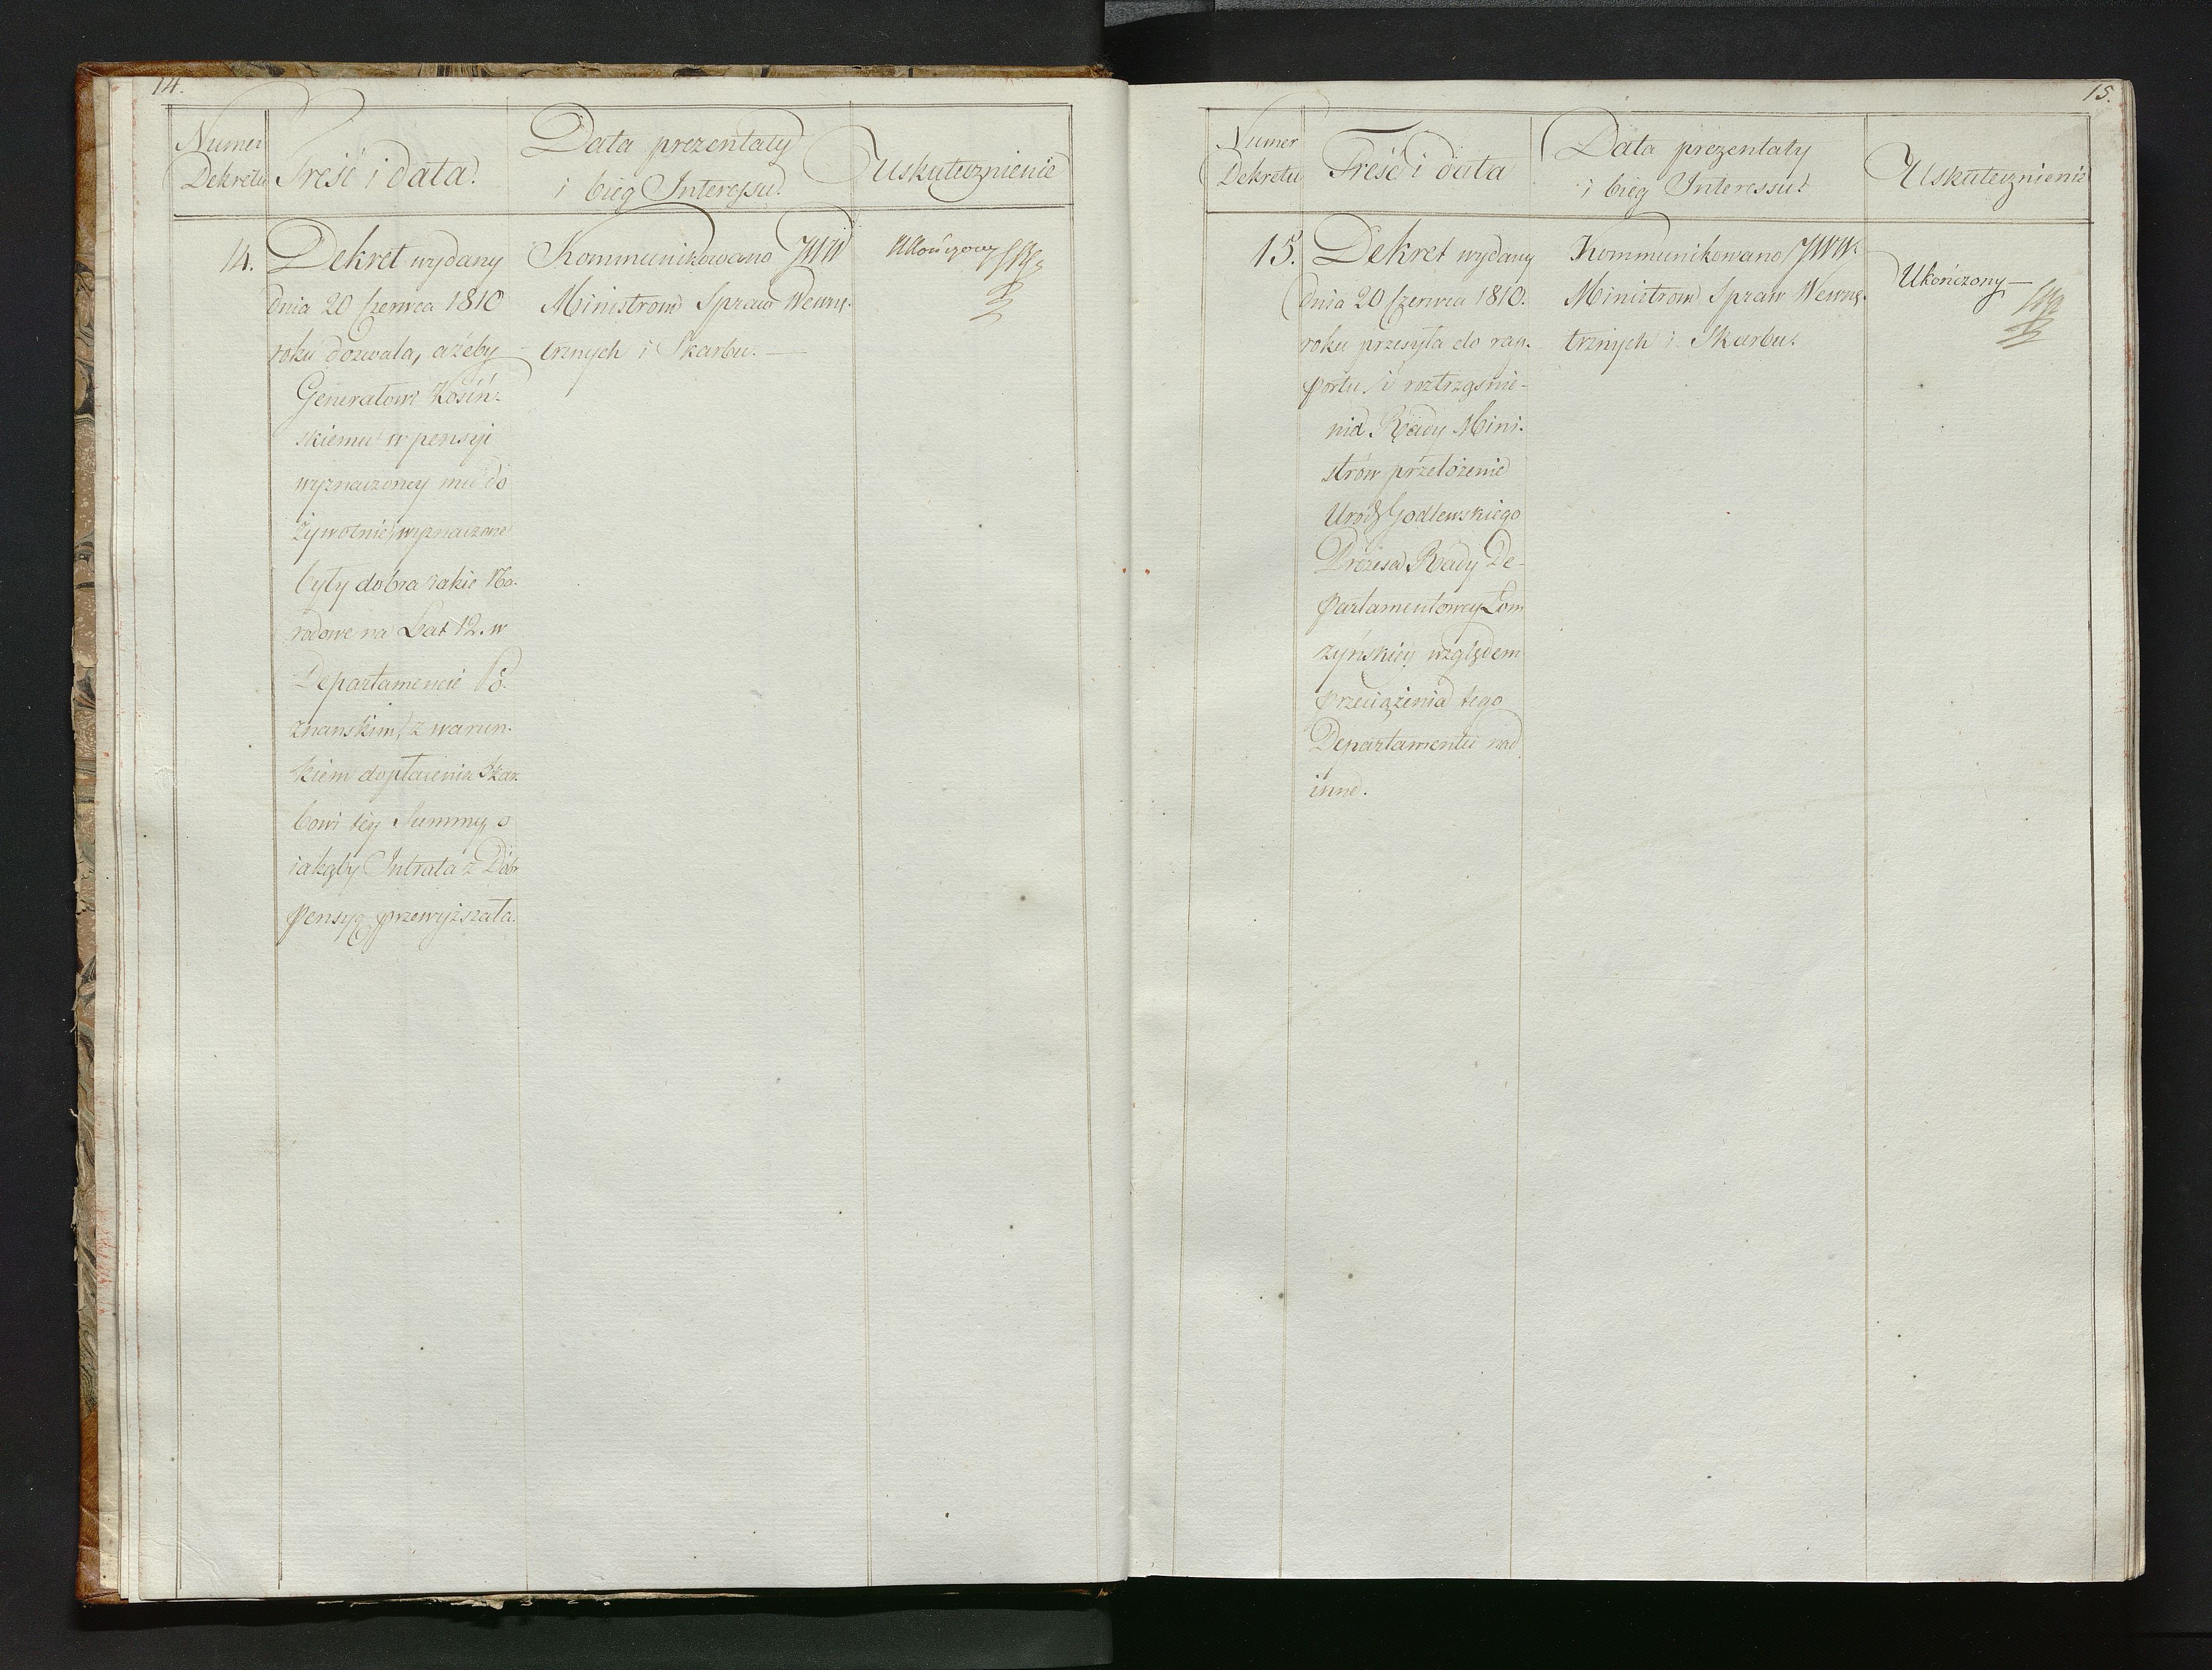 14.
Numer
Dekretu
Treść i data.
Data prezentaty
i bieg Interessu.
Uskutecznienie
14.
Dekret wydany
dnia 20 Czerwca 1810
roku dozwala, ażeby
Generałowi Kosiń-
skiemu w pensyi
wyznaczoney mu do
żywotnie wyznaczone
były dobra jakie Na-
rodowe na Lat 12. w
Departamencie Po-
znanskim, z warun-
kiem dopłacenia Skar
bowi tey Summy, o
iakąby Intrata z Dóbr
pensyą przewyższała.
Kommunikowano JWW
Ministrom Spraw Wewnę-
trznych i Skarbu. —
Ukończony
15.
Numer
Dekretu
Treść i data
Data prezentaty
i bieg Interessu.
Uskutecznienie
15.
Dekret wydany
dnia 20 Czerwca 1810.
roku przesyła do rap-
portu i roztrząśnie-
nia Rady Mini-
strów przełożenie
Urodz Godlewskiego
Prezesa Rady De-
partamentowey Łom
żyńskiey względem
przeciążenia tego
Departamentu nad
inne.
Kommunikowano JWW.
Ministrom Spraw Wewnę-
trznych i Skarbu.
Ukończony —